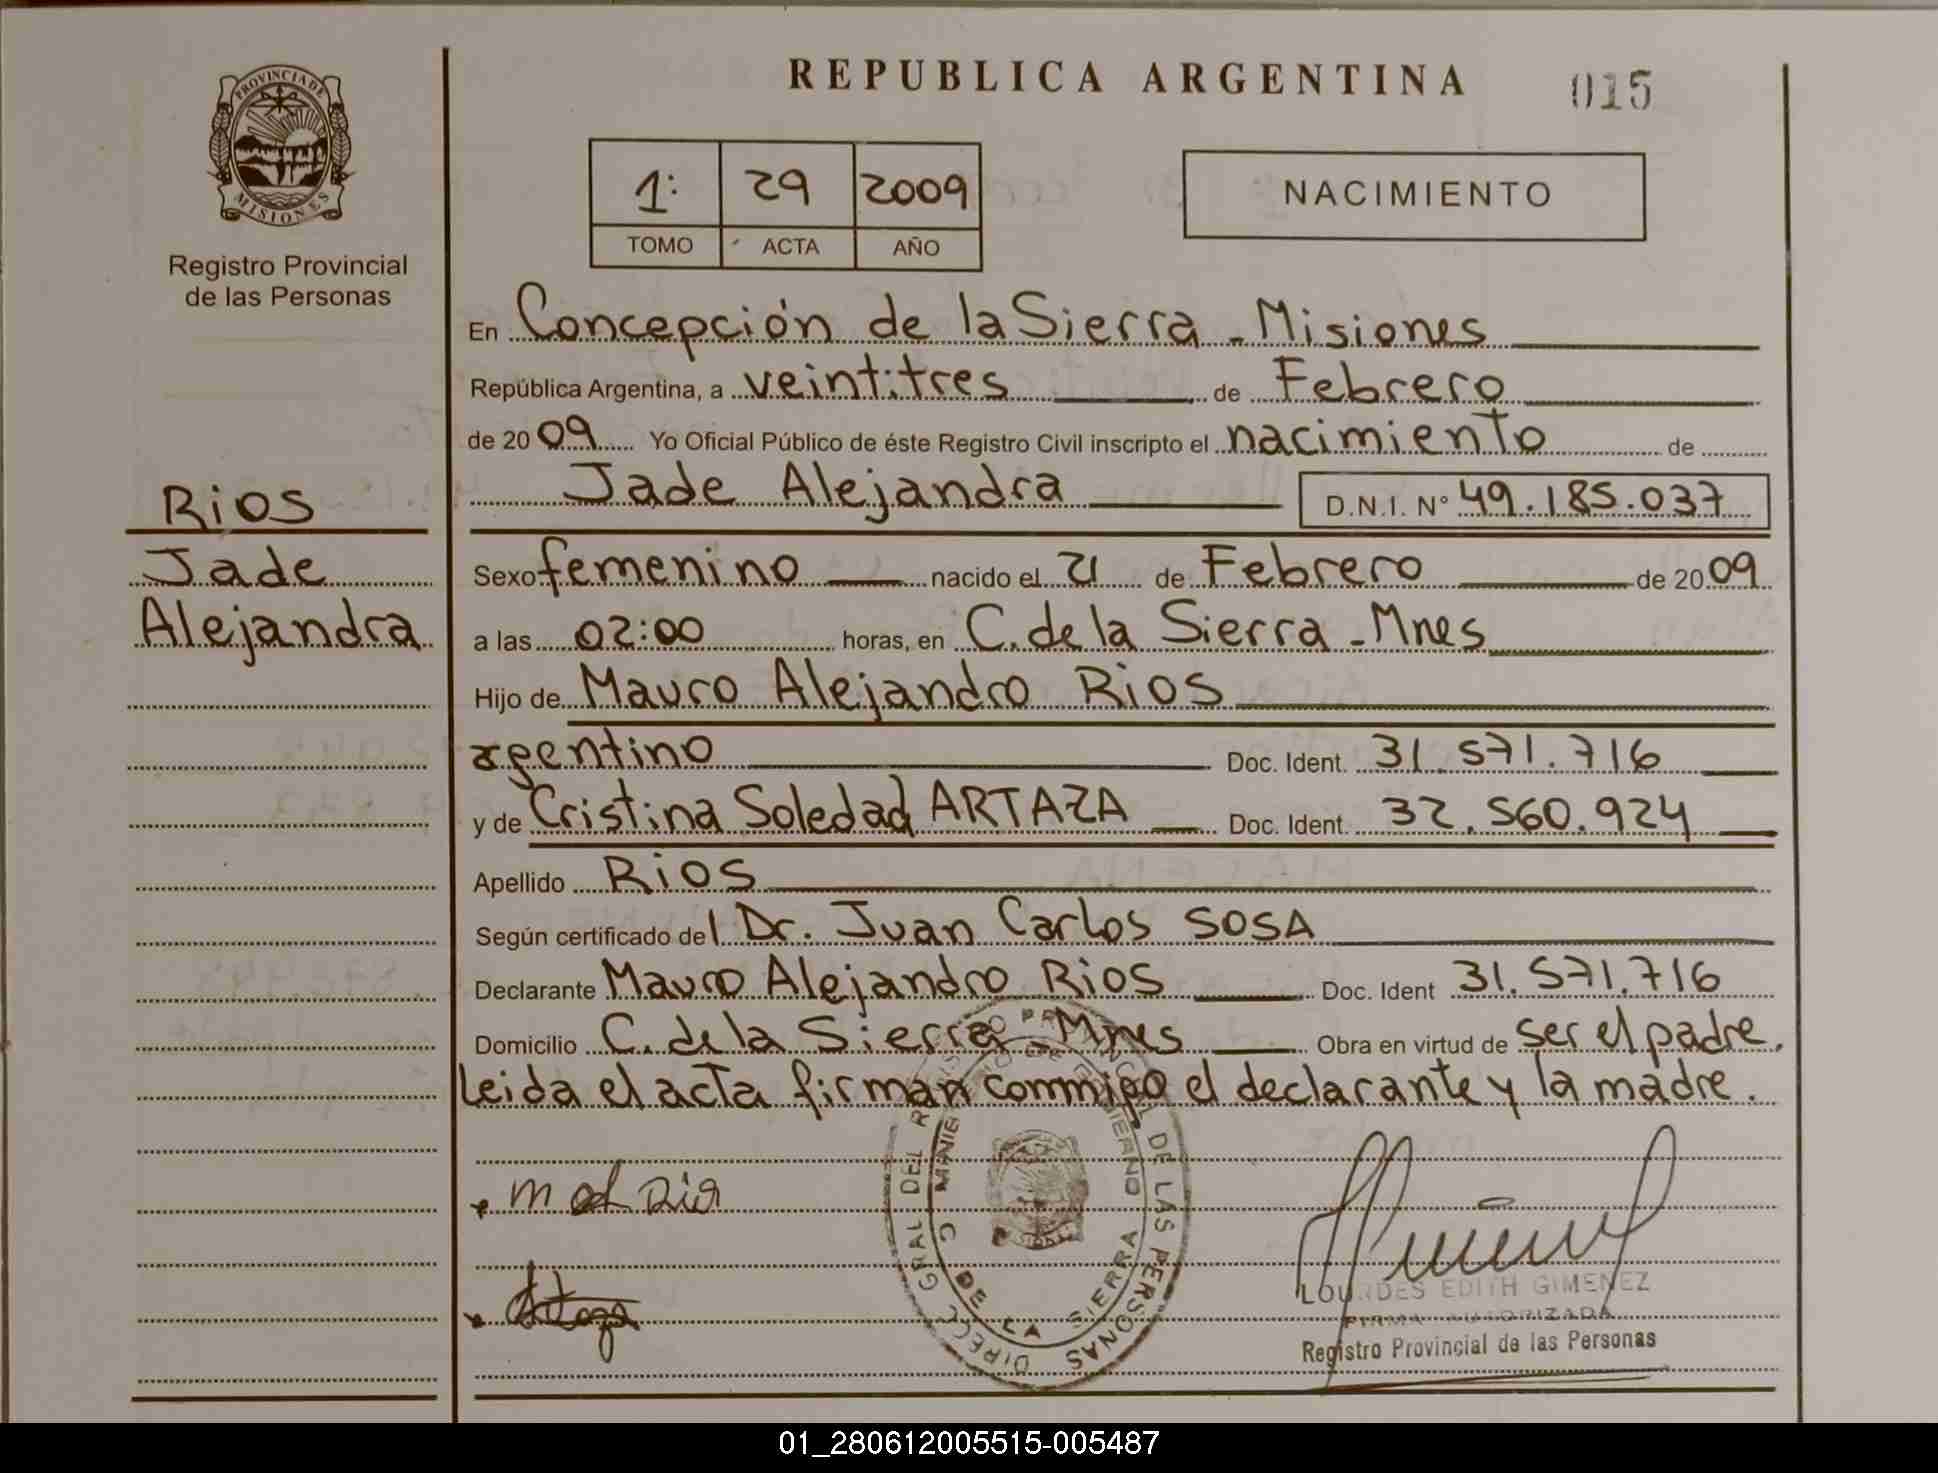 REPUBLICA ARGENTINA
015
PROVINCIA DE
MISIONES
Registro Provincial
de las Personas
1: 29 2009
TOMO ACTA AÑO
NACIMIENTO
En Concepción de la Sierra - Misiones
República Argentina, a veintitres de Febrero
de 2009 Yo Oficial Público de éste Registro Civil inscripto el nacimiento de
Jade Alejandra D.N.I. N° 49.185.037
Rios
Jade
Alejandra
Sexo femenino nacido el 21 de Febrero de 2009
a las 02:00 horas, en C. de la Sierra - Mnes
Hijo de Mauro Alejandro Rios
argentino Doc. Ident. 31.571.716
y de Cristina Soledad ARTAZA Doc. Ident. 32.560.924
Apellido Rios
Según certificado del Dr. Juan Carlos SOSA
Declarante Mauro Alejandro Rios Doc. Ident 31.571.716
Domicilio C. de la Sierra - Mnes Obra en virtud de ser el padre.
Leida el acta firman conmigo el declarante y la madre.
DIRECC GRAL DEL DE LAS PERSONAS
C DE LA SIERRA
LOURDES EDITH GIMENEZ
FIRMA AUTORIZADA
Registro Provincial de las Personas
01_280612005515-005487